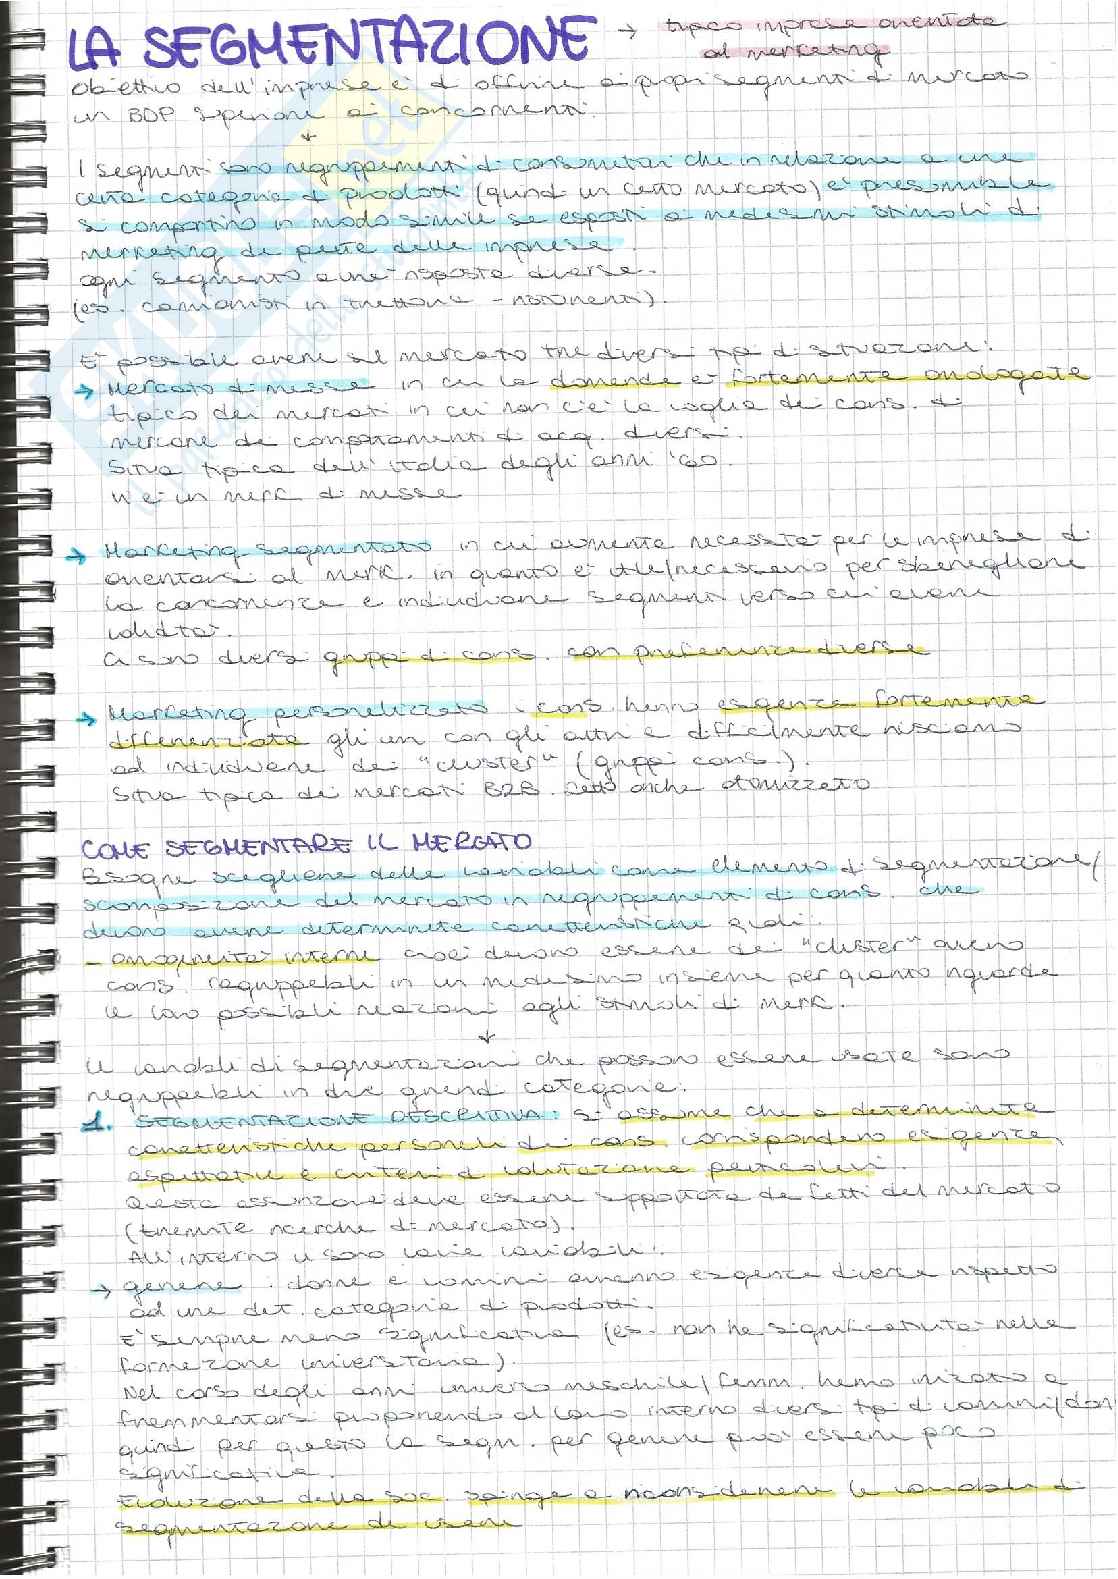 LA SEGMENTAZIONE → tipico imprese orientate
al marketing
Obiettivo dell'impresa è di offrire ai propri segmenti di mercato
un BDP superiore ai concorrenti.
↓
I segmenti sono raggruppamenti di consumatori che in relazione a una
certa categoria di prodotti (quindi un certo mercato) è presumibile
si comportino in modo simile se esposti a medesimi stimoli di
marketing da parte delle imprese.
ogni segmento avrà risposte diverse.
(es. camionisti in trattoria - ristoranti).
E' possibile avere sul mercato tre diversi tipi di situazione:
→ Mercato di massa in cui la domanda è fortemente omologata
tipico dei mercati in cui non c'è la voglia dei cons. di
marcare dei comportamenti di acq. diversi.
Situa tipica dell'Italia degli anni '60.
V è un mark di massa
→ Marketing segmentato in cui aumenta necessità per le imprese di
orientarsi al mark. in quanto è utile/necessario per sbaragliare
la concorrenza e individuare segmenti verso cui avere
validità.
Ci sono diversi gruppi di cons. con preferenze diverse
→ Marketing personalizzato i cons. hanno esigenze fortemente
differenziate gli uni con gli altri e difficilmente riusciamo
ad individuare dei "cluster" (gruppi cons.).
Situa tipica dei mercati B2B. Detto anche atomizzato
COME SEGMENTARE IL MERCATO
Bisogna scegliere delle variabili come elemento di segmentazione/
scomposizione del mercato in raggruppamenti di cons. che
devono avere determinate caratteristiche quali:
- omogeneità interna cioè devono essere dei "cluster" ovvero
cons. raggruppabili in un medesimo insieme per quanto riguarda
le loro possibili reazioni agli stimoli di mark.
↓
Le variabili di segmentazioni che possono essere usate sono
raggruppabili in due grandi categorie:
1. SEGMENTAZIONE DESCRITTIVA: si assume che a determinate
caratteristiche personali dei cons. corrispondano esigenze,
aspettative e criteri di valutazione particolari.
Questa assunzione deve essere supportata da fatti del mercato
(tramite ricerche di mercato).
All'interno vi sono varie variabili:
→ genere: donne e uomini avranno esigenze diverse rispetto
ad una det. categoria di prodotti.
E' sempre meno significativa (es. non ha significatività nella
formazione universitaria).
Nel corso degli anni universo maschile/femm. hanno iniziato a
frammentarsi proponendo al loro interno diversi tipi di uomini/don
quindi per questo la segm. per genere può essere poco
significativa.
Evoluzione della soc. spinge a riconsiderare le variabili di
segmentazione da usare